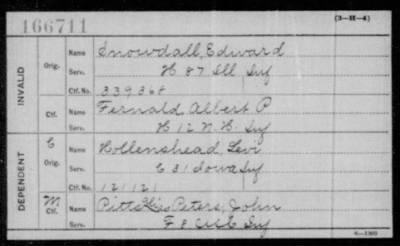 166711
(3-H-4)
INVALID
Orig.
Name Snowdall, Edward
Serv. H 87 Ill Inf
Ctf. No. 339368
Ctf.
Name Fernald, Albert P
Serv. H 12 N.H Inf
DEPENDENT
C
Orig.
Name Hollenshead, Levi
Serv. E 31 Iowa Inf
Ctf. No. 121121
M
Ctf.
Name Pitts Peters, John
Serv. F 8 Inf